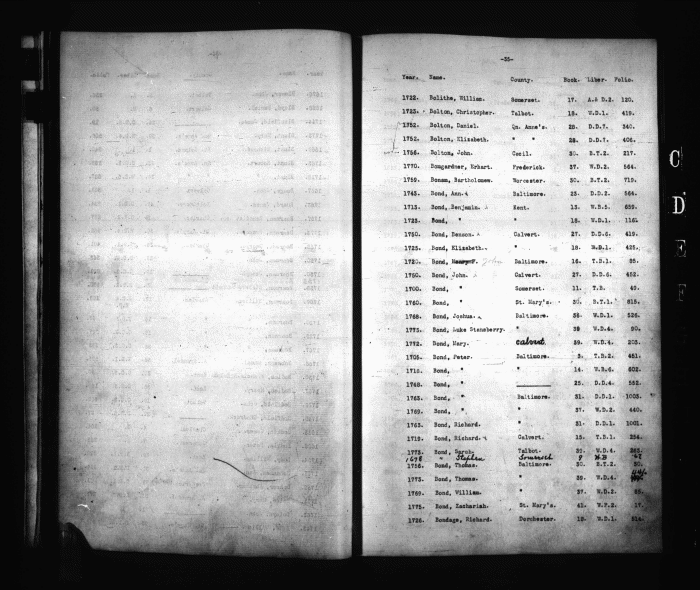 -35-
Year. Name. County. Book. Liber. Folio.
1722. Bolitha, William. Somerset. 17. A.& D.2. 120.
1723. Bolton, Christopher. Talbot. 18. W.D.1. 419.
1752. Bolton, Daniel. Qn. Anne's. 28. D.D.7. 340.
1752. Bolton, Elizabeth. " " 28. D.D.7. 406.
1756. Bolton, John. Cecil. 30. B.T.2. 217.
1770. Bomgardner, Erhart. Frederick. 37. W.D.2. 564.
1759. Bonam, Bartholomew. Worcester. 30. B.T.2. 719.
1743. Bond, Ann. Baltimore. 23. D.D.2. 564.
1713. Bond, Benjamin. Kent. 13. W.B.5. 659.
1723. Bond, " " 18. W.D.1. 116.
1750. Bond, Benson. Calvert. 27. D.D.6. 419.
1723. Bond, Elizabeth. " 18. W.D.1. 425.
1720. Bond, John Baltimore. 16. T.B.1. 95.
1750. Bond, John. Calvert. 27. D.D.6. 452.
1700. Bond, " Somerset. 11. T.B. 49.
1760. Bond, " St. Mary's. 30. B.T.1. 815.
1768. Bond, Joshua. Baltimore. 36. W.D.1. 526.
1773. Bond, Luke Stansberry. " 39 W.D.4. 90.
1772. Bond, Mary. Calvert. 39. W.D.4. 203.
1705. Bond, Peter. Baltimore. 3. T.B.2. 451.
1718. Bond, " " 14. W.B.6. 602.
1748. Bond, " 25. D.D.4. 552.
1763. Bond, " Baltimore. 31. D.D.1. 1003.
1769. Bond, " " 37. W.D.2. 440.
1763. Bond, Richard. " 31. D.D.1. 1001.
1719. Bond, Richard. Calvert. 15. T.B.1. 254.
1773. Bond, Sarah. Talbot. 39. W.D.4. 263.
1698 " Stephen Somerset 8 H.B
1756. Bond, Thomas. Baltimore. 30. B.T.2. 50.
1773. Bond, Thomas. " 39. W.D.4.
1769. Bond, William. " 37. W.D.2. 65.
1775. Bond, Zachariah. St. Mary's. 41. W.F.2. 17.
1726. Bondage, Richard. Dorchester. 18. W.D.1. 514.
C
D
E
F